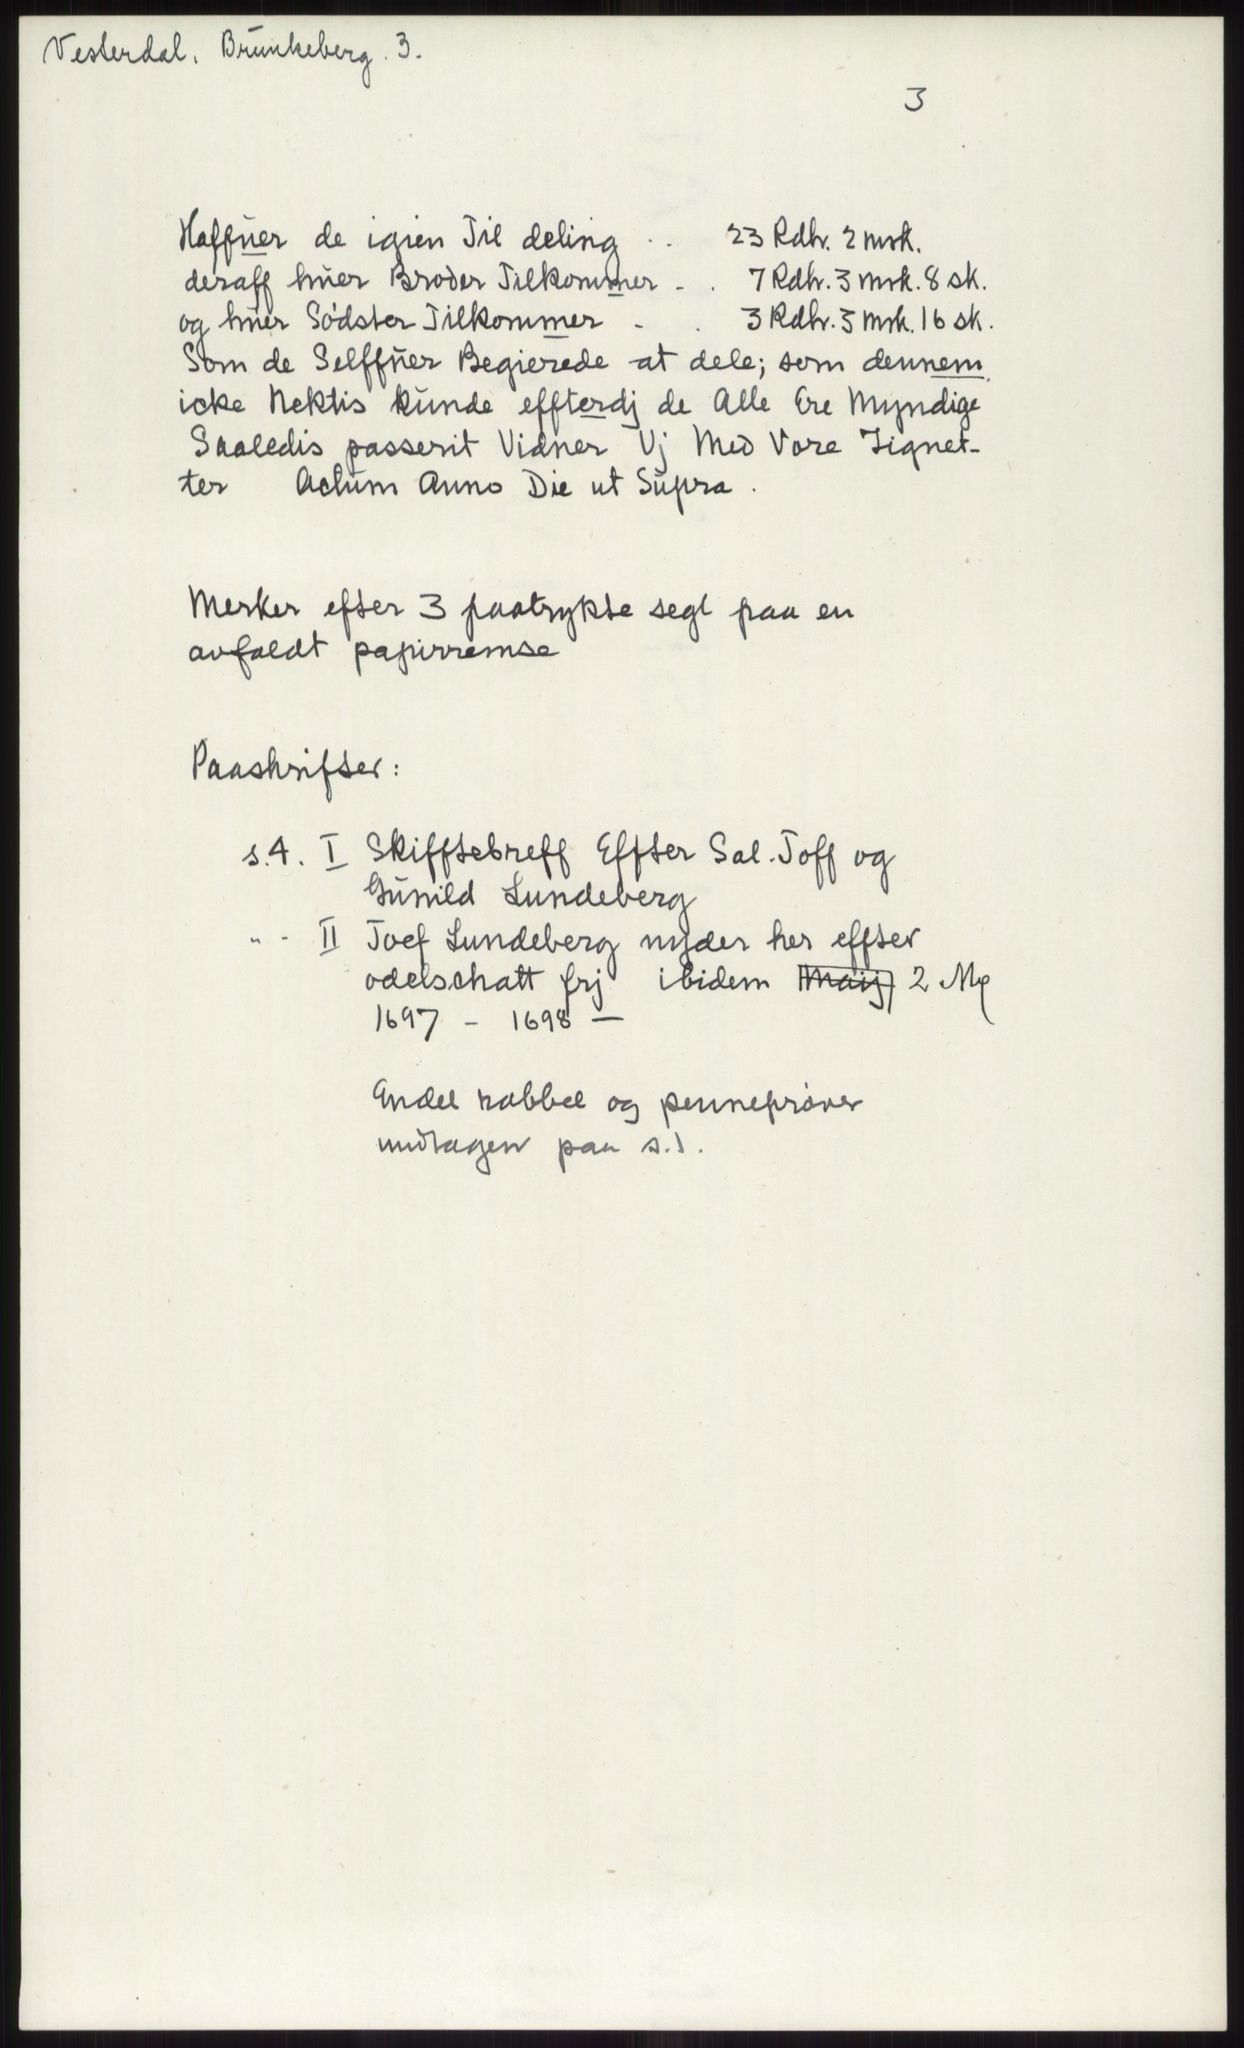 Vesterdal. Brunkeberg. 3.
3
Haffuer de igien Til deling . . 23 Rdlr. 2 mrk.
deraff huer Broder Tilkommer - . 7 Rdlr. 3 mrk. 8 sk.
og huer Södster Tilkommer - . 3 Rdlr. 3 mrk. 16 sk.
Som de Selffuer Begierede at dele; som dennem
icke Nektis kunde effterdj de Alle Ere Myndige
Saaledis passerit Vidner Vj Med Vore Zignet-
ter Actum Anno Die ut Supra.
Merker efter 3 paatrykte segl paa en
avfaldt papirremse
Paaskrifter:
s. 4. I Skifftebreff Effter Sal. Joff og
Gunild Lundeberg
" - II Joef Lundeberg nyder her effter
odelschatt frj ibidem Maij 2 Mg
1697 - 1698 —
Endel rabbel og penneprøver
undtagen paa s. 1.